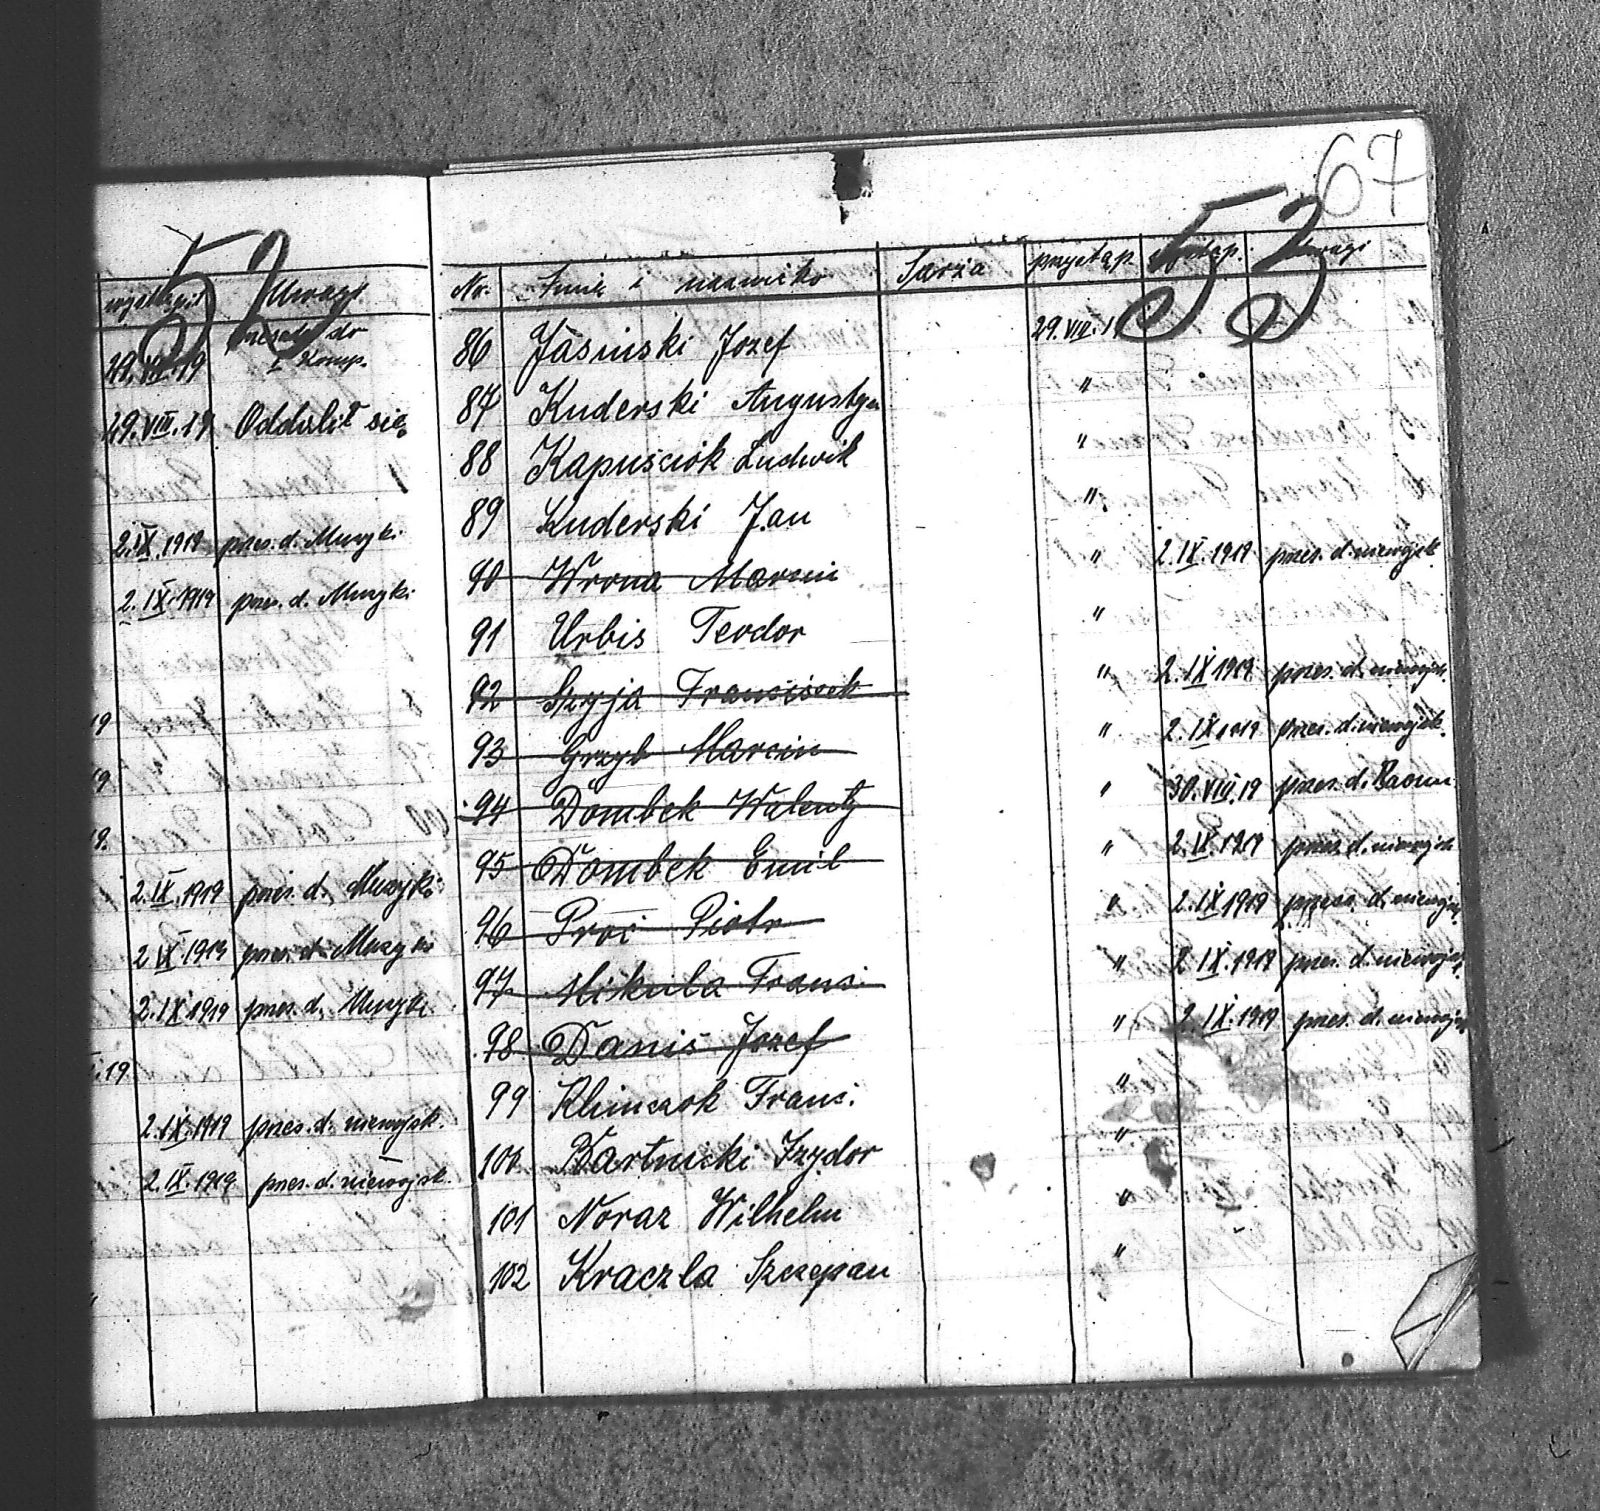 52
Uwagi
29.VIII.19 do I Komp.
29.VIII.19 Oddalił się
2.IX.1919 przes. d. Muzyki
2.IX.1919 przes. d. Muzyki
2.IX.1919 przes. d. Muzyki
2.IX.1919 przes. d. Muzyki
2.IX.1919 przes. d. Muzyki
2.IX.1919 przes. d. niewojsk.
2.IX.1919 przes. d. niewojsk.
67
53
Nr. Imie i nazwisko Szarża przystąp. Uwagi
86 Jasinski Jozef 29.VIII.1
87 Kuderski Augustyn "
88 Kapuściok Ludwik "
89 Kuderski Jan "
90 Wrona Marcin " 2.IX.1919 przes. d. niewojsk.
91 Urbis Teodor "
92 Szyja Franciszek " 2.IX.1919 przes. d. niewojsk.
93 Grzyb Marcin " 2.IX.1919 przes. d. niewojsk.
94 Dombek Walenty " 30.VIII.19 przes. d.
95 Dombek Emil " 2.IX.1919 przes. d. niewojsk
96 Proć Piotr " 2.IX.1919 przes. d. niewojsk.
97 Mikula Franc. " 2.IX.1919 przes. d. niewojsk.
98 Daniś Jozef " 2.IX.1919 przes. d. niewojsk
99 Klimczok Franc. "
100 Bartnicki Izydor "
101 Noraz Wilhelm "
102 Kraczla Szczepan "